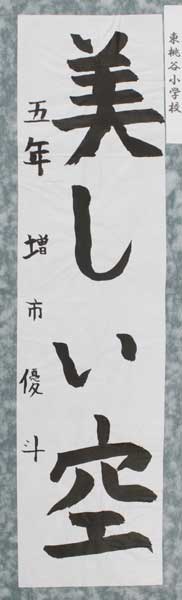 東桃谷小学校
美しい空
五年増市優斗